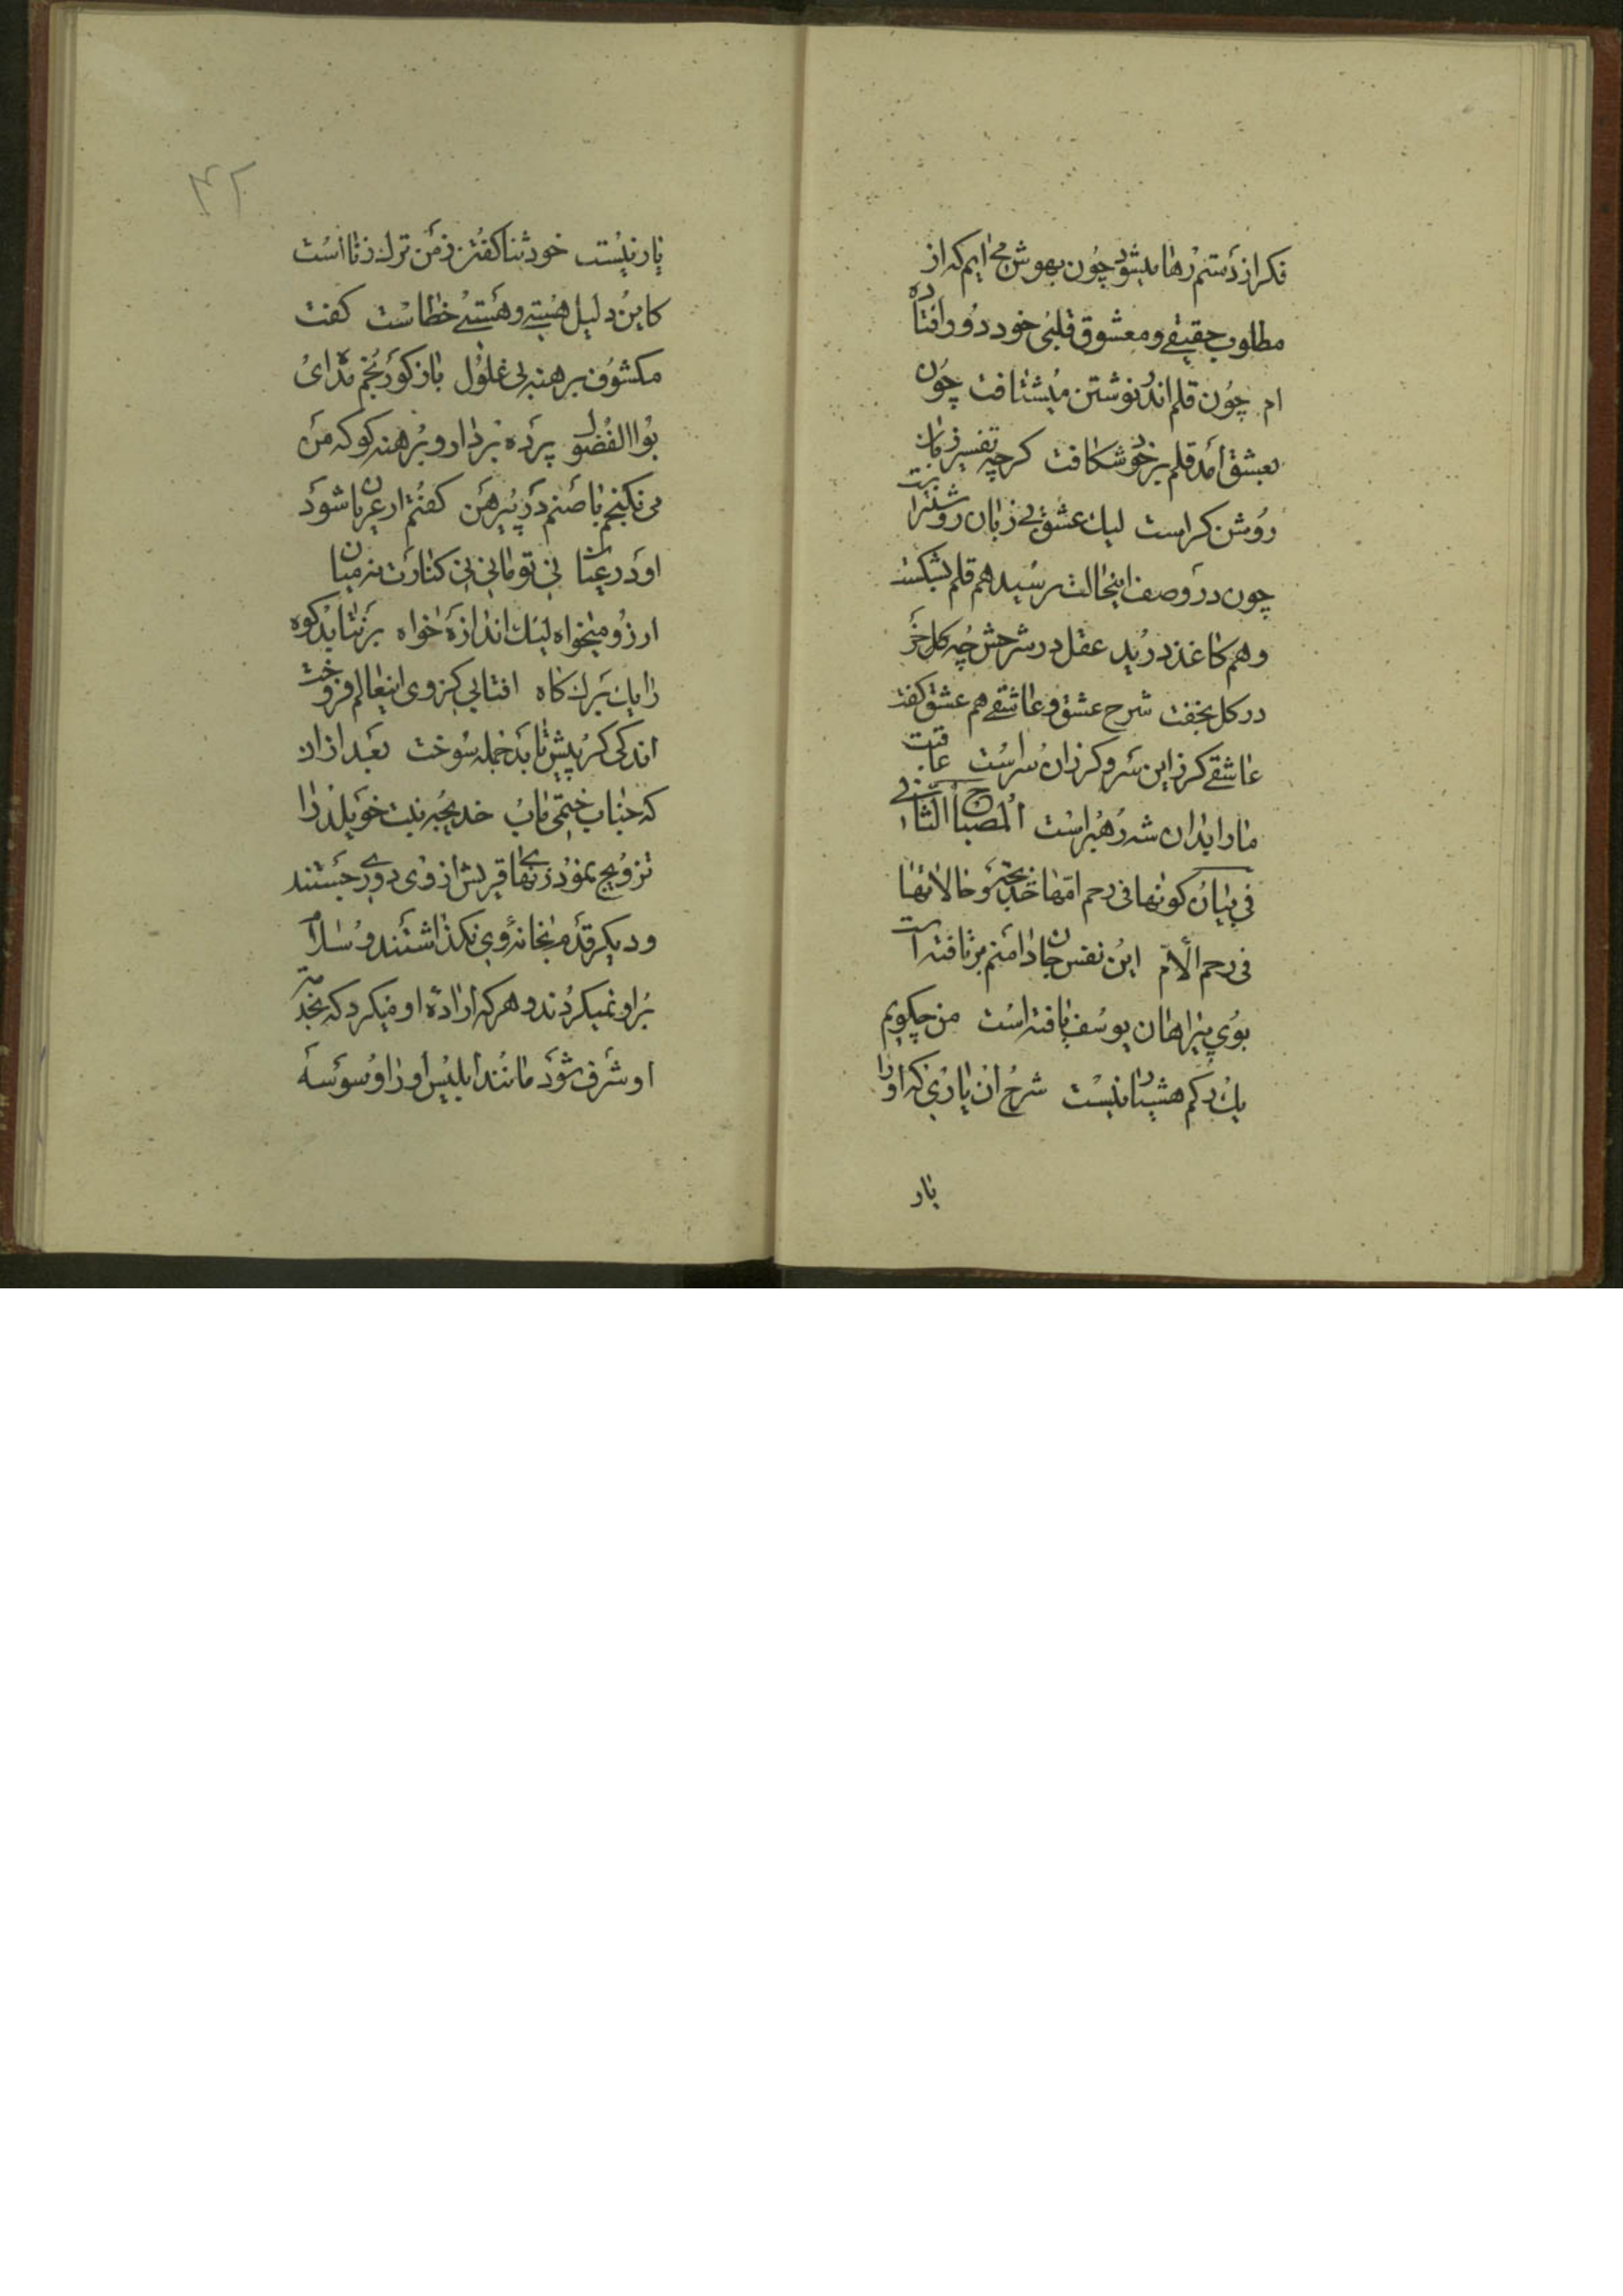 فکر از دستم رها میشود چون بهوش می ایم که از
مطلوب حقیقی و معشوق قلبی خود دور افتاده
ام چون قلم اندر نوشتن میشتافت چون
بعشق امد قلم بر خود شکافت کرچه تفسیر زبان
روشن کراست لیك عشق بی زبان روشنتراست
چون در وصف اینحالت رسید هم قلم بشکست
و هم کاغذ درید عقل در شرحش چه کل خر
در کل بخفت شرح عشق و عاشقی هم عشق کفت
عاشقی کر زاین سر و کر زان سراست عاقبت
ما را بدان شه رهبراست المصباح الثانی
فی بیان کونها فی رحم امها خدیجة و حالاتها
فی رحم الام این نفس جان دامنم برتافته است
بوی پیراهان یوسف یافته است من چکویم
یك رکم هشیار نیست شرح ان یاری که اورا
یار
۴۲
یار نیست خود ثنا کفتن ز من ترك ثنااست
کاین دلیل هستی و هستی خطاست کفت
مکشوف برهنه بی غلول باز کو رنجم مده ای
بوالفضول پرده بردار و برهنه کو که من
می نکنجم با صنم در پیرهن کفتم ار عریان شود
او در عیان نی تو مانی نی کنارت نه میان
ارزو میخواه لیك اندازه خواه برنتابد کوه
را یك برك کاه افتابی کز وی اینعالم فروخت
اندکی کر پیش تابد جمله سوخت بعد از ان
که جناب ختمی ماب خدیجه بنت خویلد را
تزویج نمود زنهای قریش از وی دوری جستند
و دیکر قدم بخانه وی نکذاشتند و سلام
بر او نمیکردند و هر که اراده او میکرد که بخدمت
او شرف شود مانند ابلیس او را وسوسه